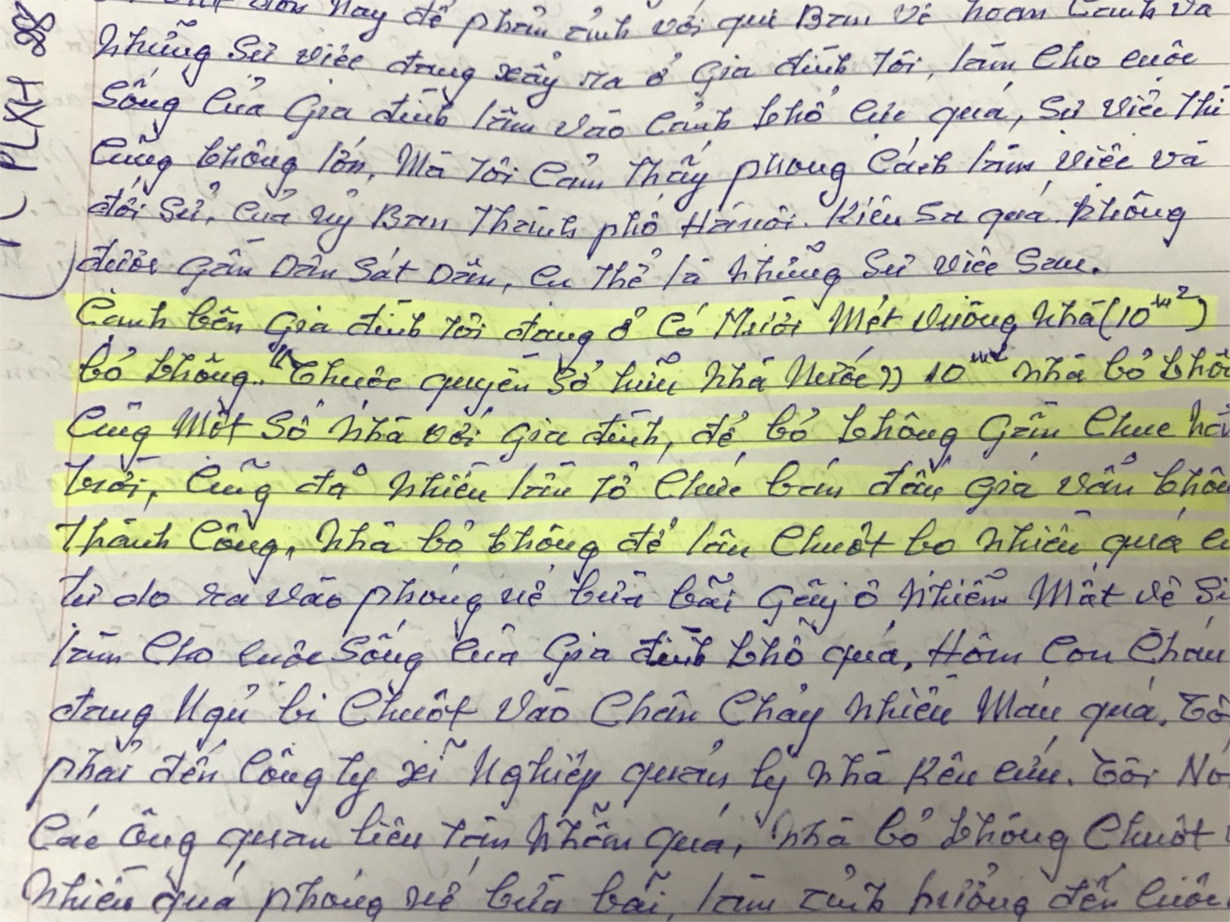 đơn này để phản ánh với quí Ban về hoàn cảnh và
những sự việc đang xẩy ra ở gia đình tôi, làm cho cuộc
sống của gia đình lâm vào cảnh khổ cực quá, sự việc thì
cũng không lớn, mà tôi cảm thấy phong cách làm việc và
đối sử, của uỷ Ban Thành phố Hà nội. kiêu sa quá không
được gần Dân sát Dân, cụ thể là những sự việc sau.
Cạnh bên gia đình tôi đang ở có Mười Mét vuông nhà (10m2)
bỏ không. "Thuộc quyền sở hữu nhà nước" 10m2 nhà bỏ
cùng một số nhà với gia đình, để bỏ không gần chục
trời, cũng đã nhiều lần tổ chức bán đấu giá vẫn
thành công, nhà bỏ không để lâu chuột bọ nhiều quá
tự do ra vào phóng uế bừa bãi gây ô nhiễm mất vệ
làm cho cuộc sống của gia đình khổ quá, Hôm con cháu
đang ngủ bị chuột vào chân chảy nhiều máu quá.
phải đến công ty xí nghiệp quản lý nhà kêu cứu. Tôi
các ông quan liêu tàn nhẫn quá, nhà bỏ không chuột
nhiều quá phóng uế bừa bãi, làm ảnh hưởng đến cuộc
PLXH